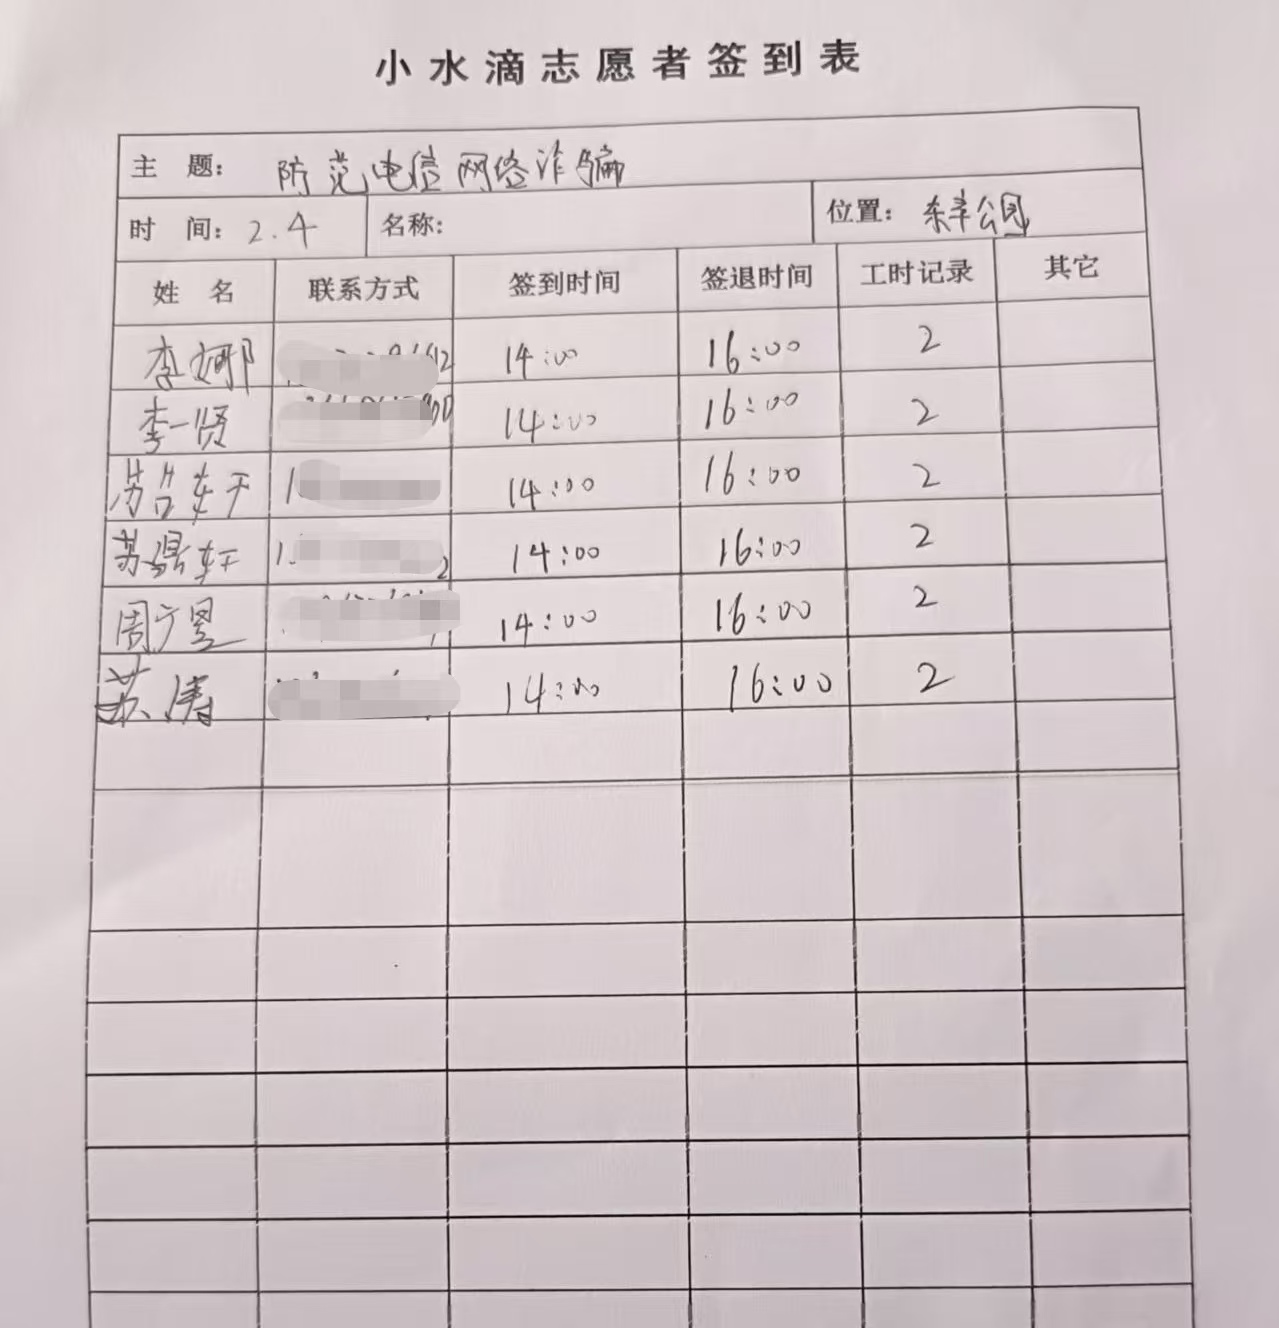 小水滴志愿者签到表
主 题: 防范电信网络诈骗
时 间: 2.4 名称: 位置: 东丰公园
姓 名 联系方式 签到时间 签退时间 工时记录 其它
李娜 14:00 16:00 2
李一贤 14:00 16:00 2
14:00 16:00 2
苏鼎轩 14:00 16:00 2
周子昱 14:00 16:00 2
苏涛 14:00 16:00 2